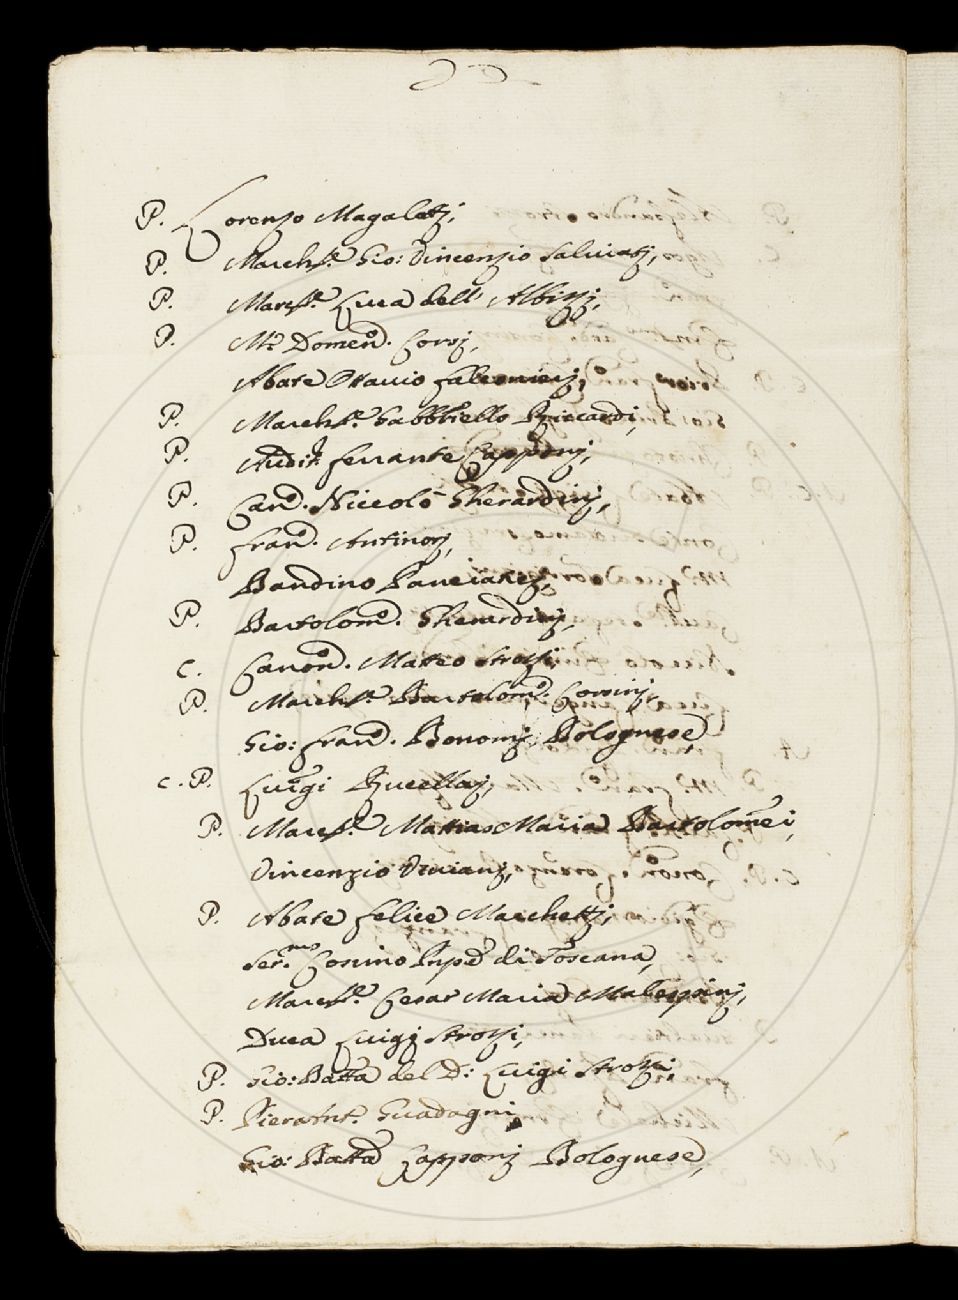 P. Lorenzo Magalotj,
P. March.se Gio: Vincenzio Salviatj,
P. March.se Luca dell' Albizzj,
P. M.r Domen.o Corsj,
Abate Ottavio Falconierj,
P. March.se Gabbriello Riccardi,
P. Audit.r Ferrante Capponj,
P. Can.o Niccolò Gherardinj,
P. Fran.o Antinorj,
Bandino Panciatichj,
P. Bartolom.o Gherardinj,
C. Canon.o Matteo Strozzi,
P. March.se Bartolom.o Corsinj,
Gio: Fran.o Bonomj Bolognese,
C. P. Luigi Rucellaj,
P. March.se Mattias Maria Bartolomei,
Vincenzio Vivianj,
P. Abate Felice Marchettj,
Ser.mo Cosimo Pnpe di Toscana,
March.se Cesar Maria Malespinj,
Duca Luigj Strozzi,
P. Gio: Batta del D: Luigi Strozzi,
P. Pierant.o Guadagni
Gio: Batta Capponj Bolognese,